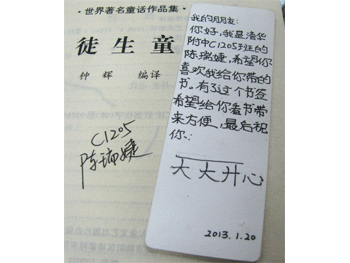 ·世界著名童话作品集·
徒生童
钟辉 编译
C1205
陈瑞婕
我的朋友:
你好,我是清华
附中C1205班的
陈瑞婕,希望你
喜欢我给你带的
书。有了这个书签
希望给你看书带
来方便,最后祝
你:
天天开心
2013.1.20